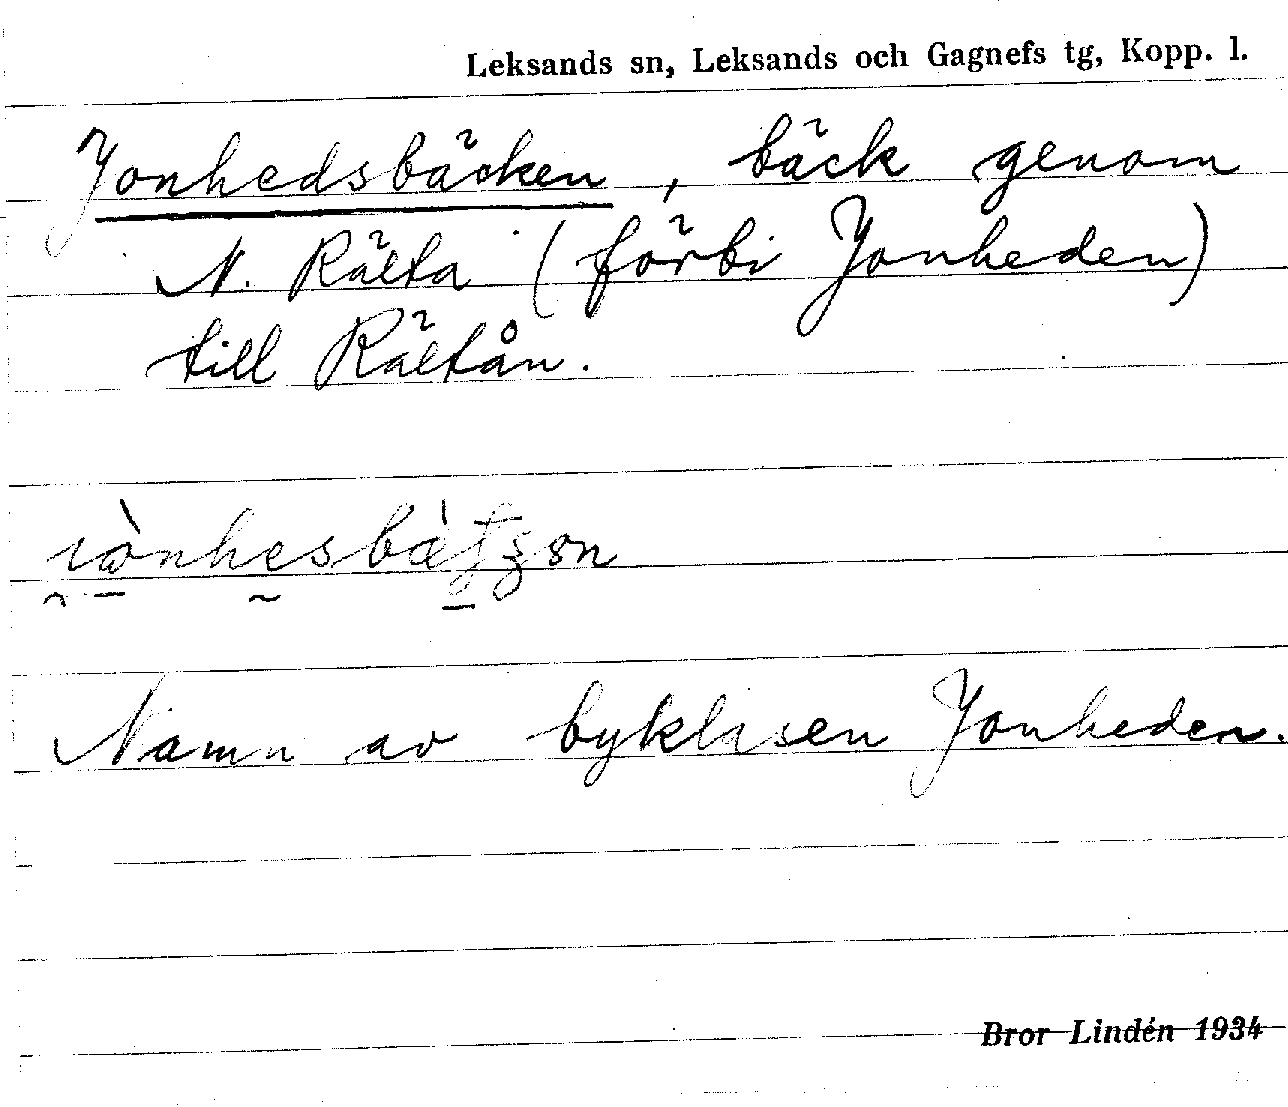 Leksands sn, Leksands och Gagnefs tg, Kopp. l.
Jonhedsbäcken, bäck genom
N. Rälta (förbi Jonheden)
till Rältån.
Namn av byklasen Jonheden.
Bror Lindén 1934